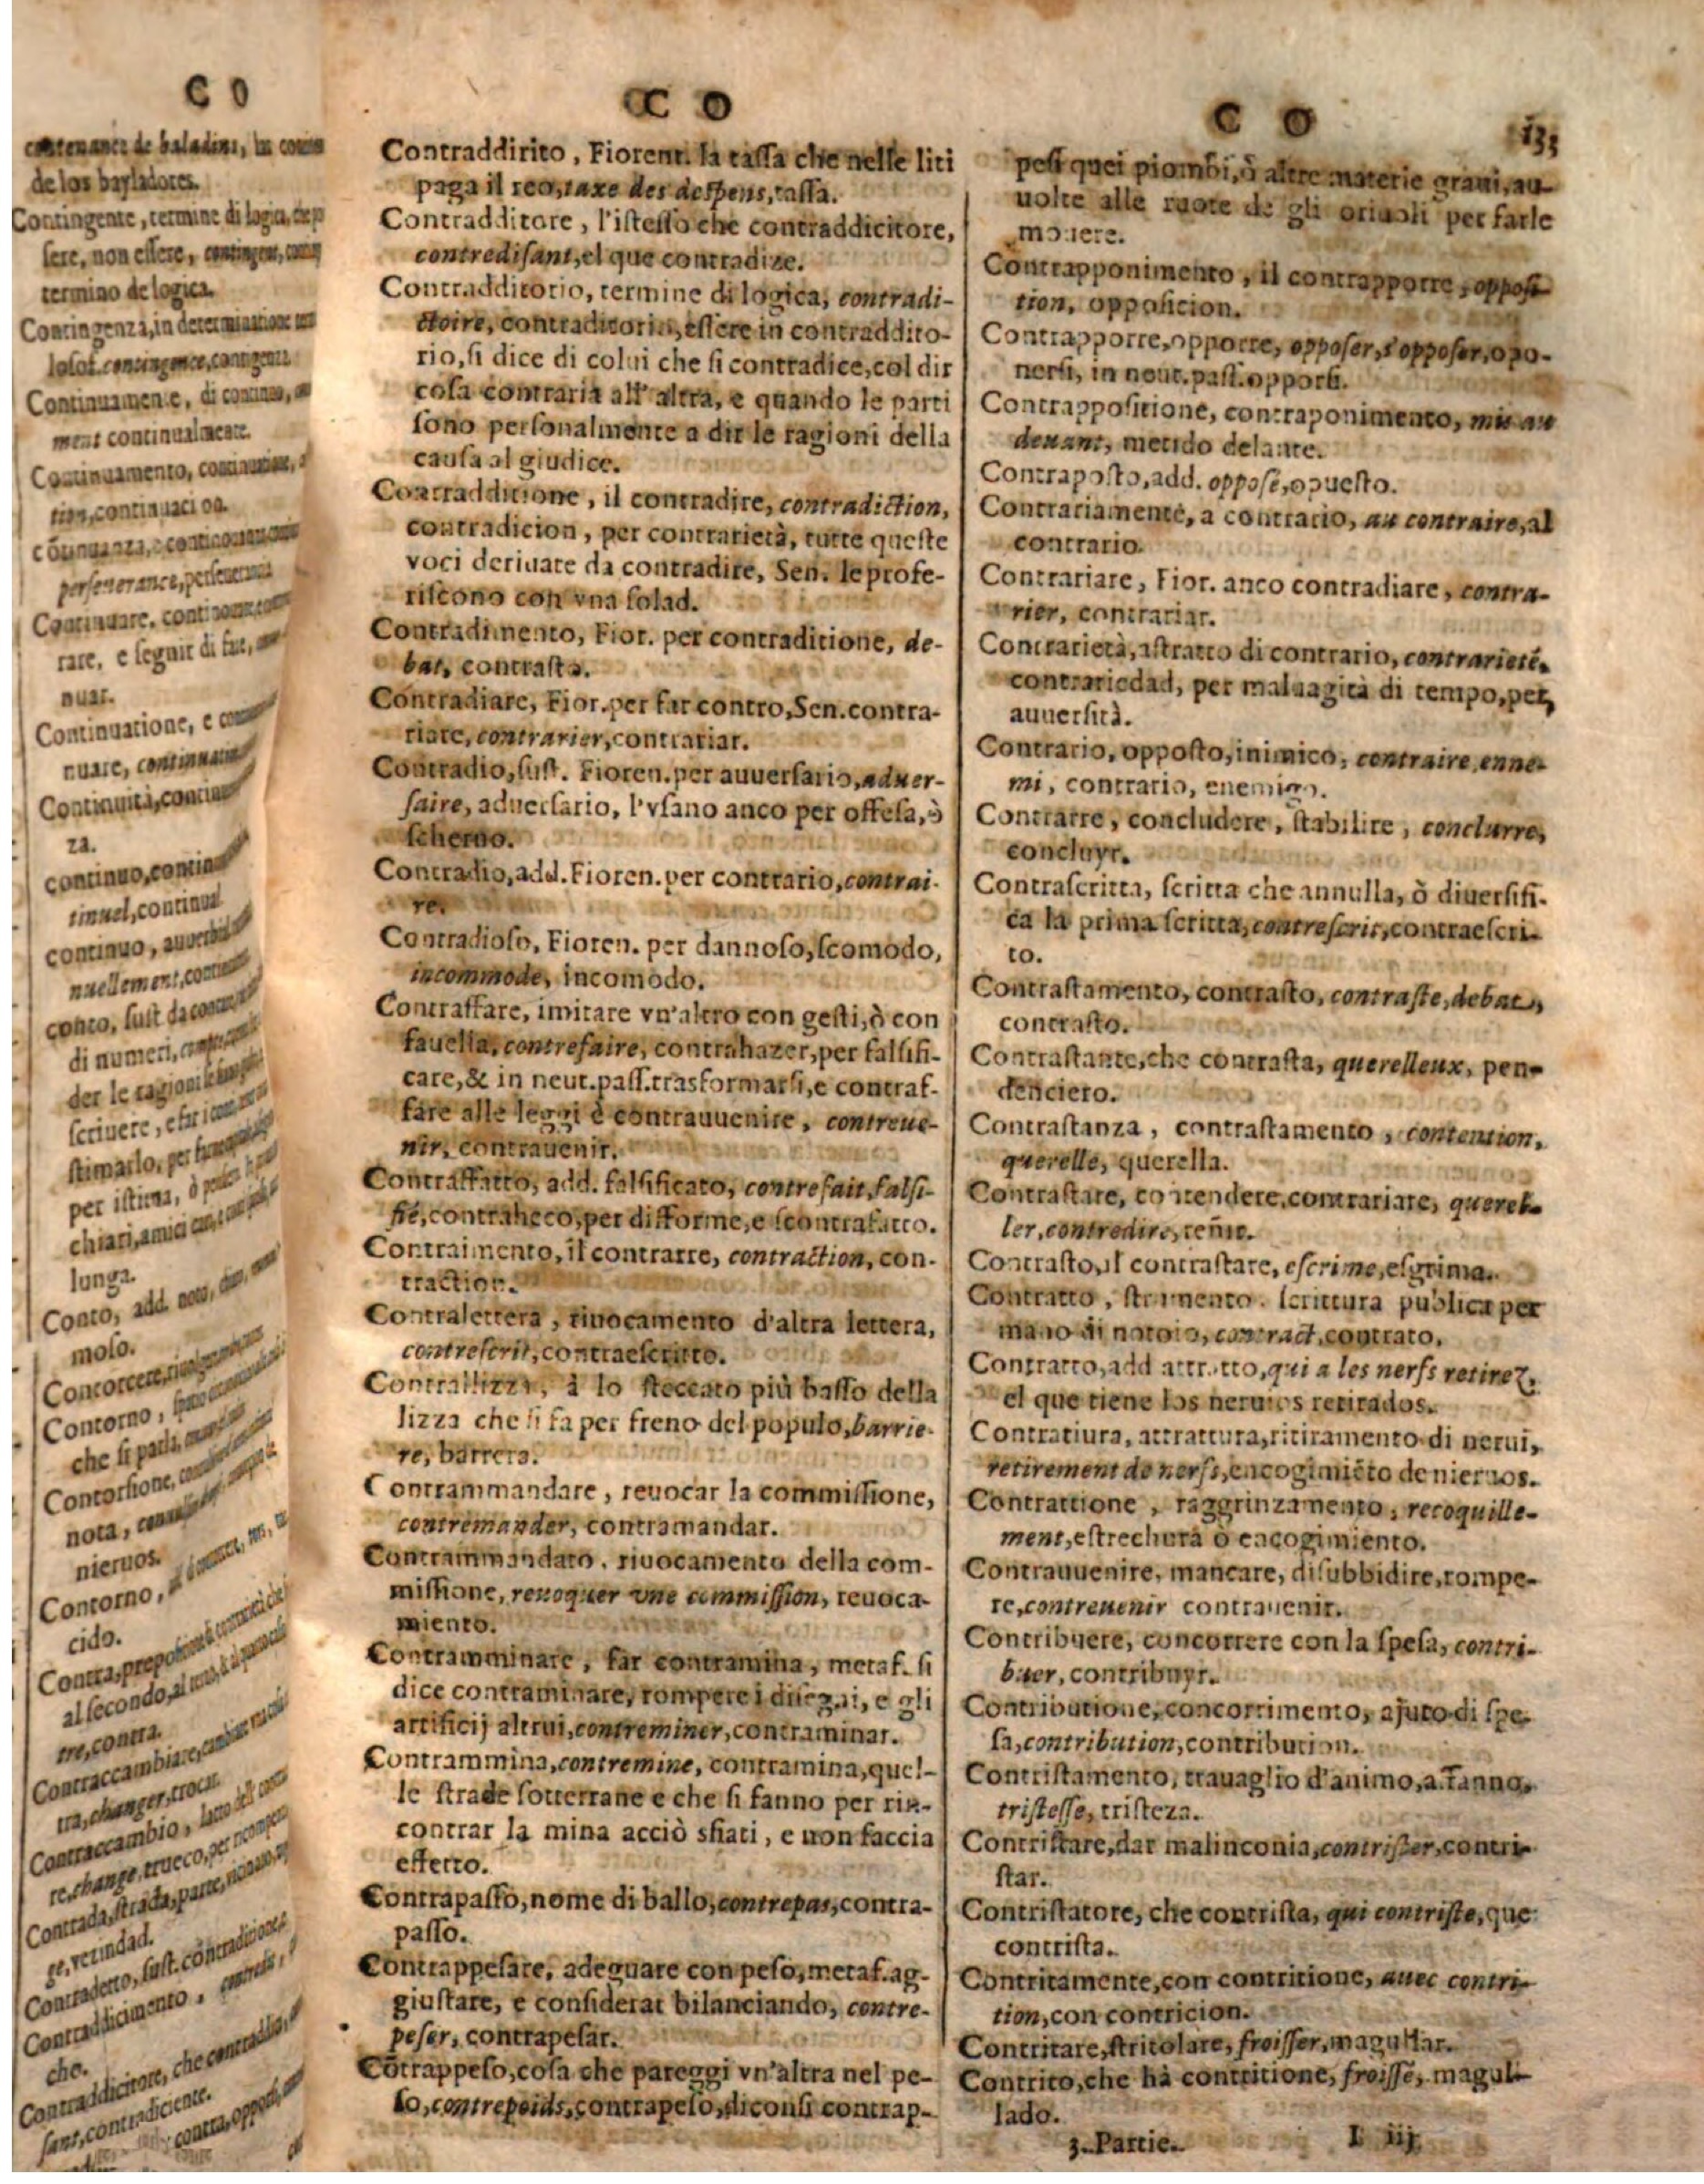 C O
contenance de baladins, la conti-
de los bayladores.
Contingente, termine di logica, che p
sere, non essere, contingent, contin
termino de logica.
Contingenza, in determinatione
losof. contingence, contigenza
Continuamente, di continuo,
ment continualmente.
Continuamento, continuatione,
tion, continuacion.
perseuerance, perseuerança
Continuare,
rare, e seguir di far,
nuar.
Continuatione, e
nuare,
Continuità,
za.
continuo,
tinuel, continual
continuo, auuerbial
nuellement,
conto, sust. da
di numeri,
der le ragioni
scriuere, e far i
stimarlo, per
per istima, ò
chiari, amici
lunga.
Conto, add. noto,
moso.
Contorcere,
Contorno,
che si parla,
Contorsione,
nota,
nieruos.
Contorno,
cido.
Contra, prepositione
al secondo, al
tre, contra.
Contraccambiare,
tra, changer, trocar.
Contraccambio,
re, change, trueco, per ricompensa
Contrada, strada, parte,
ge, vezindad.
Contradetto, sust. contradicione
Contraddicimento,
che.
Contraddicitore, che contraddice,
sant, contradiciente.
contra, opporsi,
C O
Contraddirito, Fiorent. la tassa che nelle liti
paga il reo, taxe des despens, tassa.
Contradditore, l'istesso che contraddicitore,
contredisant, el que contradize.
Contradditorio, termine di logica, contradi-
ctoire, contraditorio, essere in contraddito-
rio, si dice di colui che si contradice, col dir
cosa contraria all' altra, e quando le parti
sono personalmente a dir le ragioni della
causa al giudice.
Contradditione, il contradire, contradiction,
contradicion, per contrarietà, tutte queste
voci deriuate da contradire, Sen. le profe-
riscono con vna sola d.
Contradimento, Fior. per contraditione, de-
bat, contrasto.
Contradiare, Fior. per far contro, Sen. contra-
riare, contrarier, contrariar.
Contradio, sust. Fioren. per auuersario, aduer-
saire, aduersario, l'vsano anco per offesa, ò
scherno.
Contradio, add. Fioren. per contrario, contrai-
re.
Contradioso, Fioren. per dannoso, scomodo,
incommode, incomodo.
Contraffare, imitare vn'altro con gesti, ò con
fauella, contrefaire, contrahazer, per falsifi-
care, & in neut. pass. trasformarsi, e contraf-
fare alle leggi è contrauuenire, contreue-
nir, contrauenir.
Contraffatto, add. falsificato, contrefait, falsi-
fié, contraheco, per difforme, e scontrafatto.
Contraimento, il contrarre, contraction, con-
traction.
Contralettera, riuocamento d'altra lettera,
contrescrit, contraescritto.
Contrallizza, à lo steccato più basso della
lizza che si fa per freno del populo, barrie-
re, barrera.
Contrammandare, reuocar la commissione,
contremander, contramandar.
Contrammandato, riuocamento della com-
missione, reuoquer vne commission, reuoca-
miento.
Contramminare, far contramina, metaf. si
dice contraminare, rompere i disegni, e gli
artificij altrui, contreminer, contraminar.
Contrammina, contremine, contramina, quel-
le strade sotterrane e che si fanno per rin-
contrar la mina acciò sfiati, e non faccia
effetto.
Contrapasso, nome di ballo, contrepas, contra-
passo.
Contrappesare, adeguare con peso, metaf. ag-
giustare, e considerar bilanciando, contre-
peser, contrapesar.
Cõtrappeso, cosa che pareggi vn'altra nel pe-
so, contrepoids, contrapeso, diconsi contrap-
C O 133
pesi quei piombi, ò altre materie graui, au-
uolte alle ruote de gli oriuoli per farle
mouere.
Contrapponimento, il contrapporre, opposi-
tion, opposicion.
Contrapporre, opporre, opposer, s'opposer, opo-
nersi, in neut. pass. opporsi.
Contrappositione, contraponimento, mis au
deuant, metido delante.
Contraposto, add. opposé, opuesto.
Contrariamente, a contrario, au contraire, al
contrario.
Contrariare, Fior. anco contradiare, contra-
rier, contrariar.
Contrarietà, astratto di contrario, contrarieté,
contrariedad, per maluagità di tempo, per
auuersità.
Contrario, opposto, inimico, contraire, enne-
mi, contrario, enemigo.
Contrarre, concludere, stabilire, conclurre,
concluyr.
Contrascritta, scritta che annulla, ò diuersifi-
ca la prima scritta, contrescrit, contraescri-
to.
Contrastamento, contrasto, contraste, debat,
contrasto.
Contrastante, che contrasta, querelleux, pen-
denciero.
Contrastanza, contrastamento, contention,
querelle, querella.
Contrastare, contendere, contrariare, querel-
ler, contredire, reñir.
Contrasto, il contrastare, escrime, esgrima.
Contratto, strumento, scrittura publica per
mano di notoio, contract, contrato.
Contratto, add attratto, qui a les nerfs retirez,
el que tiene los neruios retirados.
Contratiura, attrattura, ritiramento di nerui,
retirement de nerfs, encogimiẽto de nieruos.
Contrattione, raggrinzamento, recoquille-
ment, estrechura ò encogimiento.
Contrauuenire, mancare, disubbidire, rompe-
re, contreuenir contrauenir.
Contribuere, concorrere con la spesa, contri-
buer, contribuyr.
Contributione, concorrimento, ajuto di spe-
sa, contribution, contribucion.
Contristamento, trauaglio d'animo, affanno,
tristesse, tristeza.
Contristare, dar malinconia, contrister, contri-
star.
Contristatore, che contrista, qui contriste, que
contrista.
Contritamente, con contritione, auec contri-
tion, con contricion.
Contritare, stritolare, froisser, magullar.
Contrito, che hà contritione, froissé, magul-
lado.
3. Partie. I iij